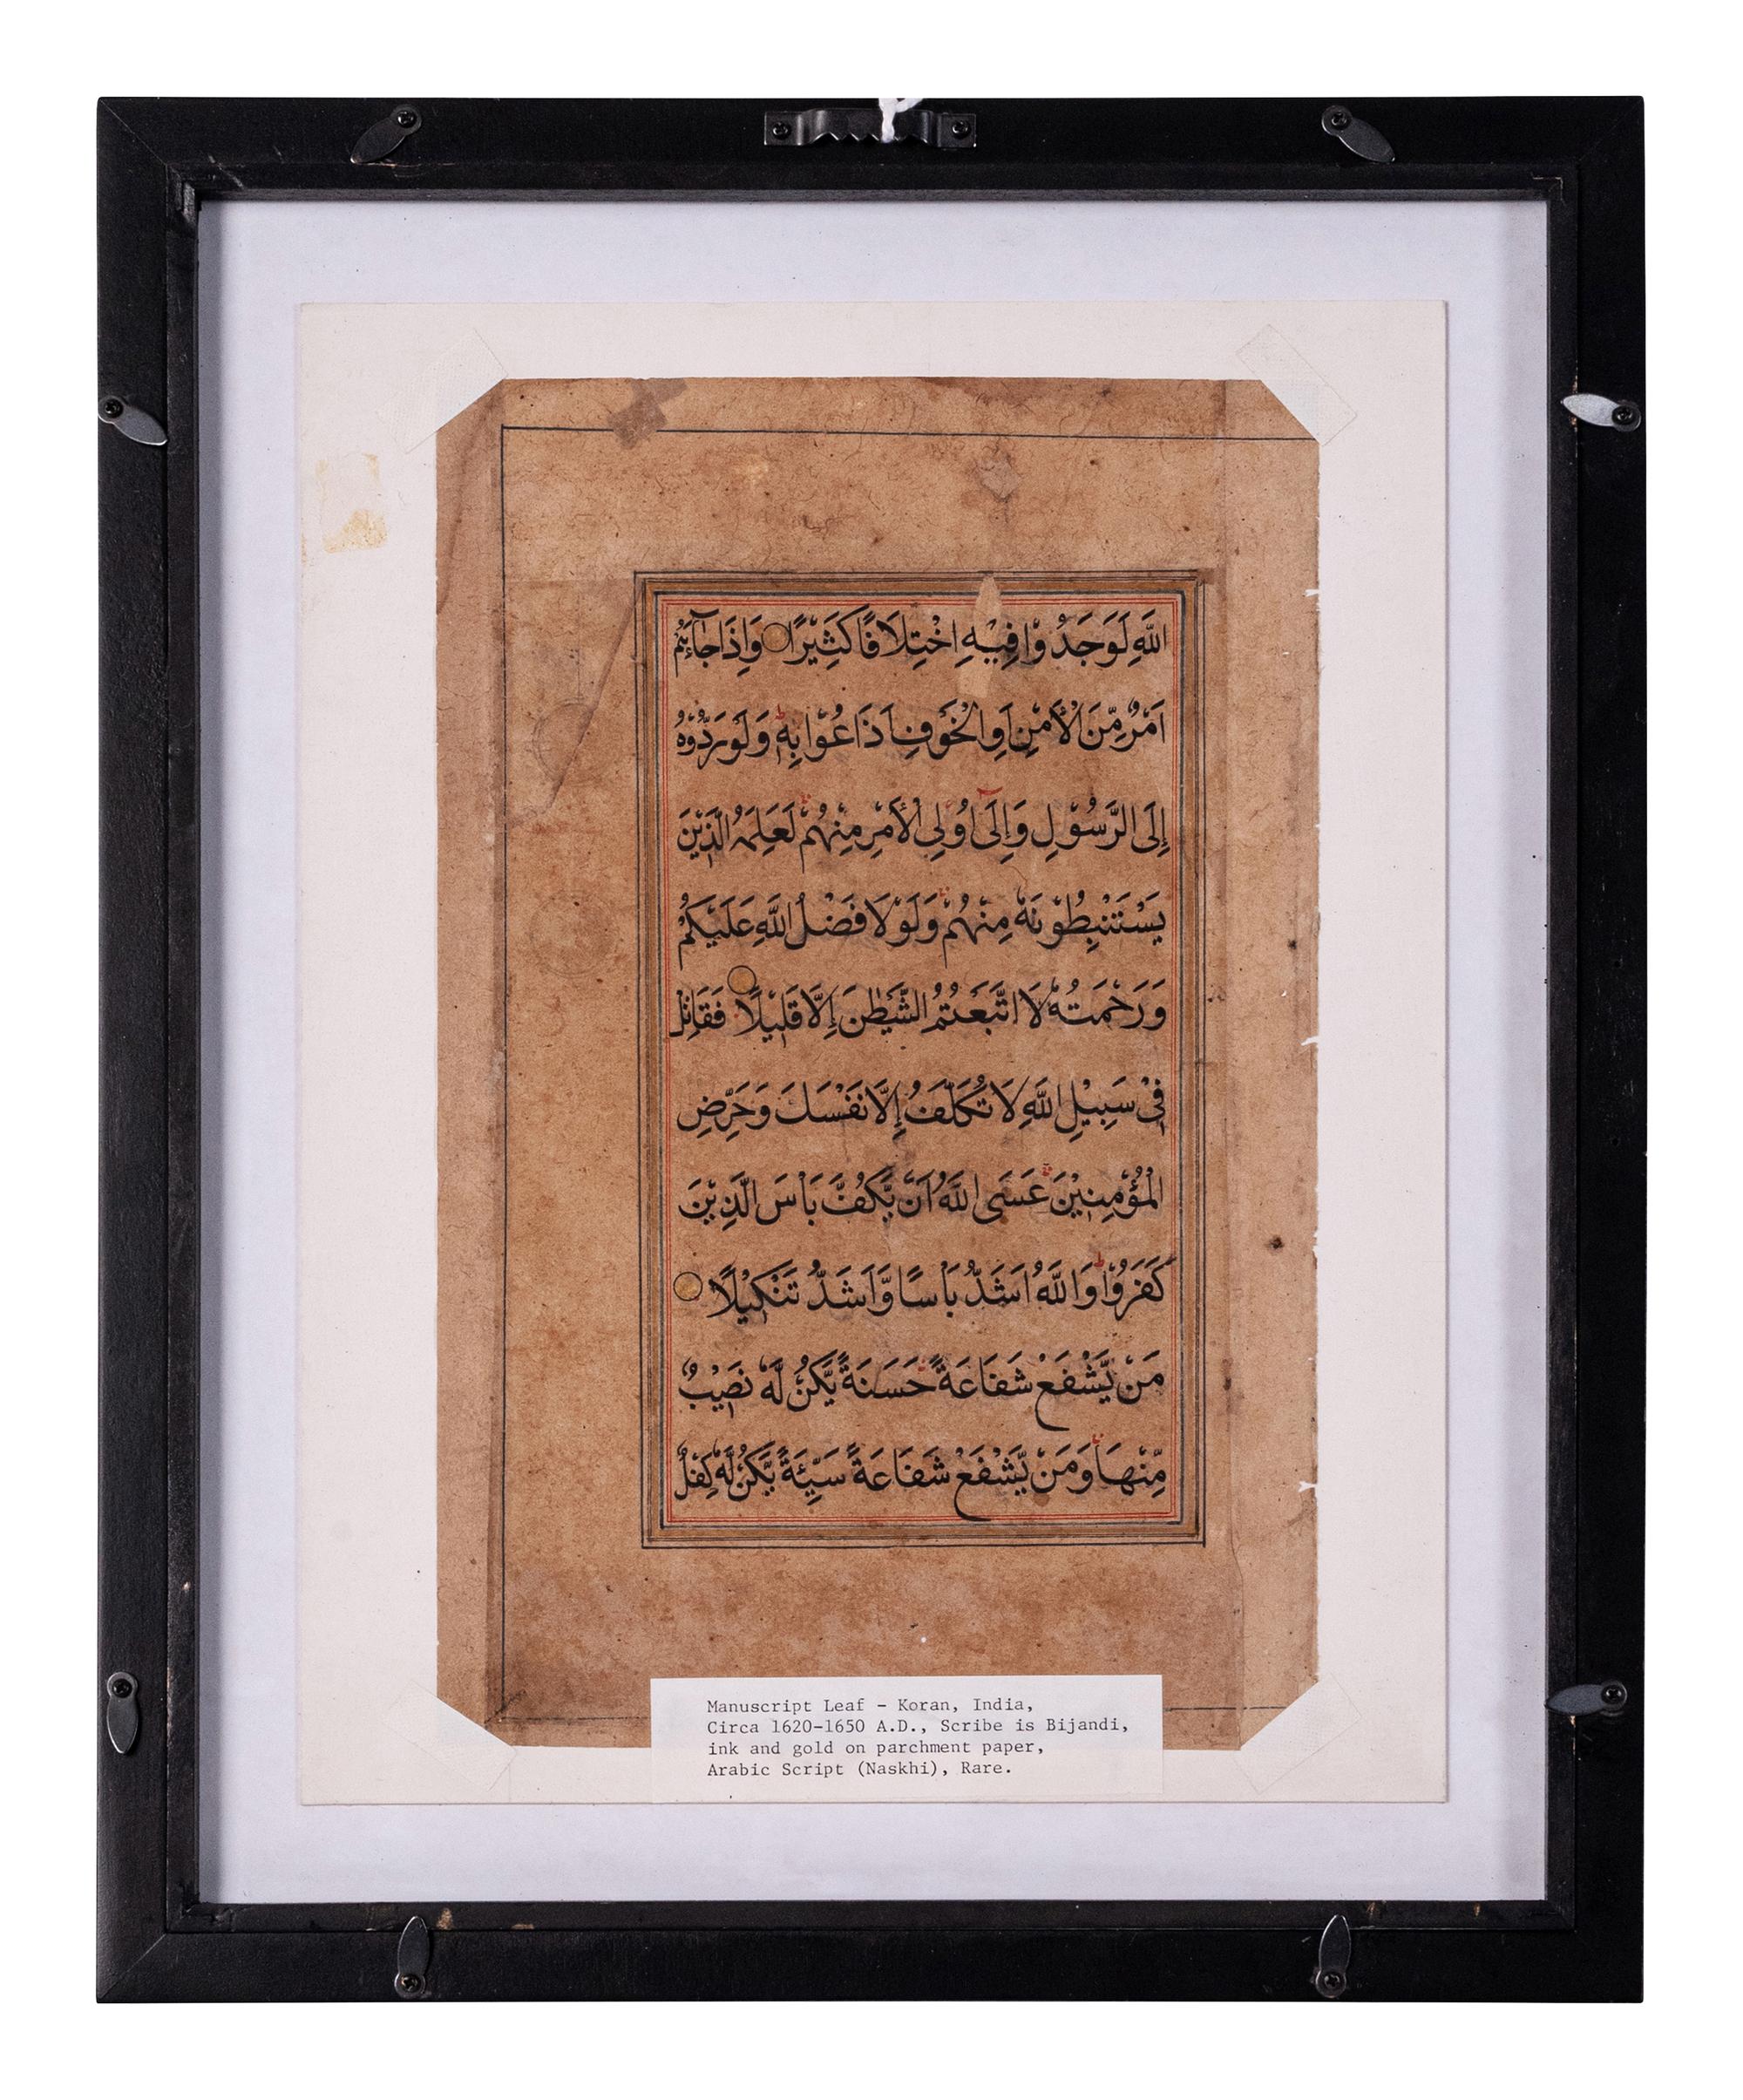 اللّٰهِ لَوَجَدُوْا فِيْهِ اخْتِلَافًا كَثِيْرًا وَاِذَا جَآءَهُمْ
اَمْرٌ مِّنَ الْاَمْنِ اَوِ الْخَوْفِ اَذَاعُوْا بِهٖ ط وَلَوْ رَدُّوْهُ
اِلَى الرَّسُوْلِ وَاِلٰٓى اُولِى الْاَمْرِ مِنْهُمْ لَعَلِمَهُ الَّذِيْنَ
يَسْتَنْبِطُوْنَهٗ مِنْهُمْ ط وَلَوْلَا فَضْلُ اللّٰهِ عَلَيْكُمْ
وَرَحْمَتُهٗ لَا اتَّبَعْتُمُ الشَّيْطٰنَ اِلَّا قَلِيْلًا فَقَاتِلْ
فِىْ سَبِيْلِ اللّٰهِ لَا تُكَلَّفُ اِلَّا نَفْسَكَ وَحَرِّضِ
الْمُؤْمِنِيْنَ ط عَسَى اللّٰهُ اَنْ يَّكُفَّ بَاْسَ الَّذِيْنَ
كَفَرُوْا ط وَاللّٰهُ اَشَدُّ بَاْسًا وَّاَشَدُّ تَنْكِيْلًا
مَنْ يَّشْفَعْ شَفَاعَةً حَسَنَةً يَّكُنْ لَّهٗ نَصِيْبٌ
مِّنْهَا ط وَمَنْ يَّشْفَعْ شَفَاعَةً سَيِّئَةً يَّكُنْ لَّهٗ كِفْلٌ
Manuscript Leaf - Koran, India,
Circa 1620-1650 A.D., Scribe is Bijandi,
ink and gold on parchment paper,
Arabic Script (Naskhi), Rare.